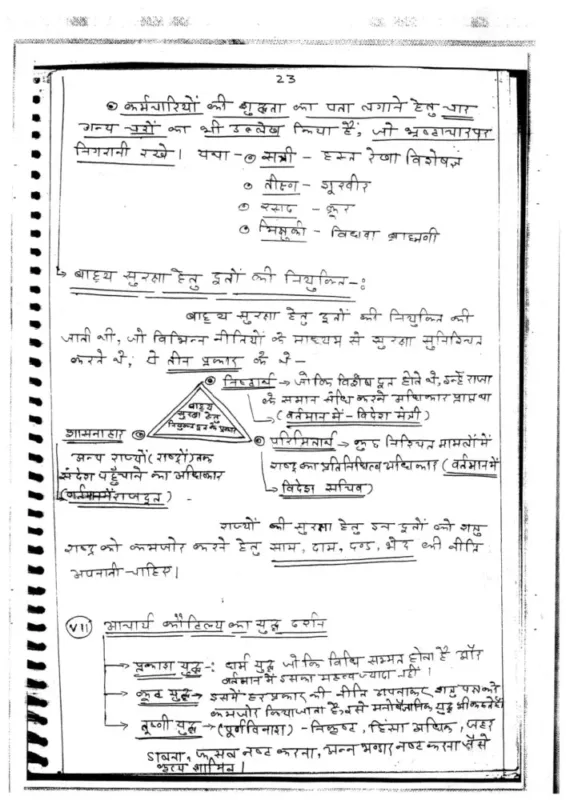 23
कर्मचारियों की शुद्धता का पता लगाने हेतु चार
अन्य चरों का भी उल्लेख किया है, जो भ्रष्टाचार पर
निगरानी रखे। यथा - सत्री - हस्त रेखा विशेषज्ञ
तीक्ष्ण - शूरवीर
रसद - क्रूर
भिक्षुकी - विधवा ब्राह्मणी
बाह्य सुरक्षा हेतु दूतों की नियुक्ति -:
बाह्य सुरक्षा हेतु दूतों की नियुक्ति की
जाती थी, जो विभिन्न नीतियों के माध्यम से सुरक्षा सुनिश्चित
करते थे, ये तीन प्रकार के थे -
निष्ठार्थ → जो कि विशेष दूत होते थे, इन्हें राजा
के समान संधि करने अधिकार प्राप्त था
(वर्तमान में - विदेश मंत्री)
बाह्य
सुरक्षा हेतु
नियुक्त दूत के प्रकार
शासनाहार
अन्य राज्यों (राष्ट्रों) तक
संदेश पहुँचाने का अधिकार
(वर्तमान में राजदूत)
परिमितार्थ → कुछ निश्चित मामलों में
राष्ट्र का प्रतिनिधित्व अधिकार (वर्तमान में
विदेश सचिव)
राज्यों की सुरक्षा हेतु इन दूतों को शत्रु
राष्ट्र को कमजोर करने हेतु साम, दाम, दण्ड, भेद की नीति
अपनानी चाहिए।
VII आचार्य कौटिल्य का युद्ध दर्शन
प्रकाश युद्ध -: धर्म युद्ध जो कि विधि सम्मत होता है और
वर्तमान में इसका महत्व ज्यादा नहीं।
कूट युद्ध → इसमें हर प्रकार की नीति अपनाकर शत्रु पक्ष को
कमजोर किया जाता है, इसे मनोवैज्ञानिक युद्ध भी कहते हैं
तूष्णी युद्ध → (पूर्ण विनाश) - निकृष्ट, हिंसा अधिक, जहर
डालना, फसल नष्ट करना, अन्न भण्डार नष्ट करना जैसे
कृत्य शामिल।